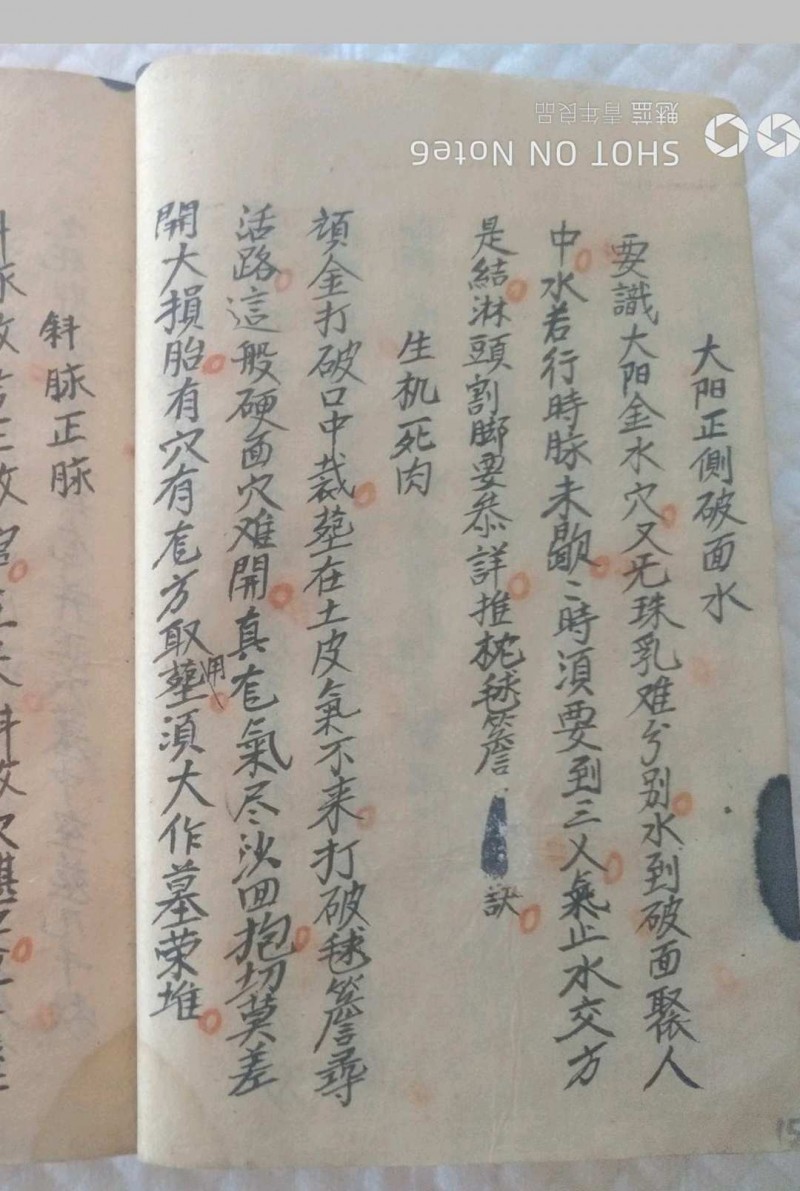 SHOT ON Note6
魅蓝 青年良品
大阳正側破面水
要識大阳金水穴又旡珠乳难分别水到破面聚人
中水若行時脉未歇〻時湏要到三乂氣止水交方
是結淋頭割脚要恭詳推枕毬簷 訣
生机死肉
顉金打破口中裁塟在土皮氣不来打破毬簷尋
活路這般硬面穴难開真氣尽沙回抱切莫差
開大損胎有穴有方取塟用湏大作墓荣堆
斜脉正脉
15